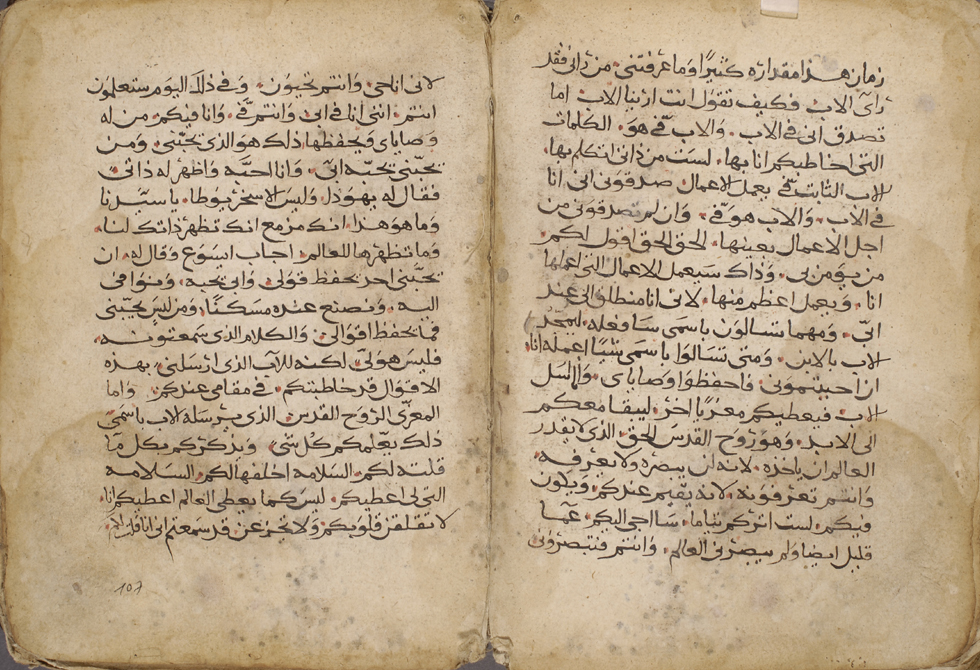 زمان هذا مقداره كثيرًا وما عرفتني من رانى فقد
راى الاب فكيف تقول انت ارنيا الاب اما
تصدق انى في الاب والاب فّي هو الكلمات
التى اخاطبكم انا بها لست من ذاتى اتكلم بها
الاب الثابت فّي يعمل الاعمال صدقونى انى انا
في الاب والاب هو فّي وان لم تصدقونى من
اجل الاعمال بعينها الحق الحق اقول لكم
من يومن بى وذاك سيعمل الاعمال التى اعملها
انا ويعمل اعظم منها لانى انا منطلق الى عند
ابّي ومهما تسالون باسمى سافعله ليمجد
الاب بالابن ومتى تسالوا باسمى شيًيا اعمله انا
ان احببتمونى فاحفظوا وصاياى واسل
الاب فيعطيكم معزيًا اخر ليبقا معكم
الى الابد وهو روح القدس الحق الذى لا يقدر
العالم ان ياخذه لانه لن يبصره ولا يعرفه
وانتم تعرفونه لانه يقيم عندكم ويكون
فيكم لست اترككم يتاما ساجى اليكم عمّا
قليل ايضا ولم يبصرنى العالم وانتم فتبصرونى
لانى انا حى وانتم تحيون وفي ذلك اليوم ستعلمون
انتم انى انا في ابى وانتم فّي وانا فيكم من له
وصاياى ويحفظها ذلك هو الذى يحبّنى ومن
يحبّنى يحبّه ابى وانا احبّه واظهر له ذاتى
فقال له يهوذا وليس الاسخريوطا يا سيّدنا
وما هو هذا انك مزمع انك تظهر ذاتك لنا
وما تظهرها للعالم اجاب ايسوع وقال له ان
يحبّنى احد يحفظ قولى وابى يحبه ونوافى
اليه ونصنع عنده مسكنًا ومن ليس يحبّنى
فما يحفظ اقوالى والكلام الذى سمعتمونه
فليس هو لى لكنه للاب الذى ارسلنى بهذه
الاقوال قد خاطبتكم في مقامى عندكم واما
المعزّى الروح القدس الذى يرسله الاب باسمى
ذلك يعّلمكم كل شى ويذكركم بكل ما
قلته لكم السلامه اخلفها لكم السلامه
التى لى اعطيكم ليس كما يعطى العالم اعطيكم انا
لا تقلقن قلوبكم ولا تجزعن قد سمعتم انى انا قلت لكم
107